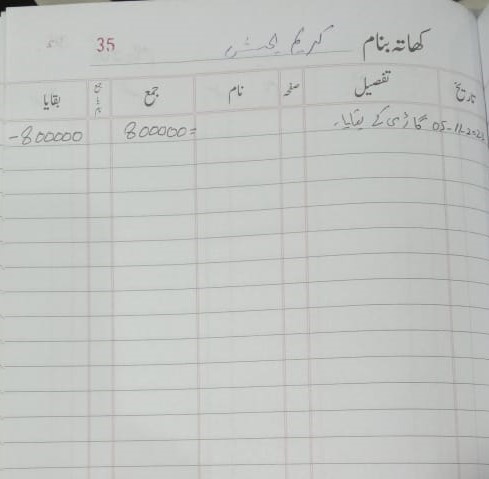 35 کھاتہ بنام کریم بخش
تاریخ تفصیل صفحہ نام جمع بقایا
05-11-202 گاڑی کے بقایا۔ 800000= 800000-